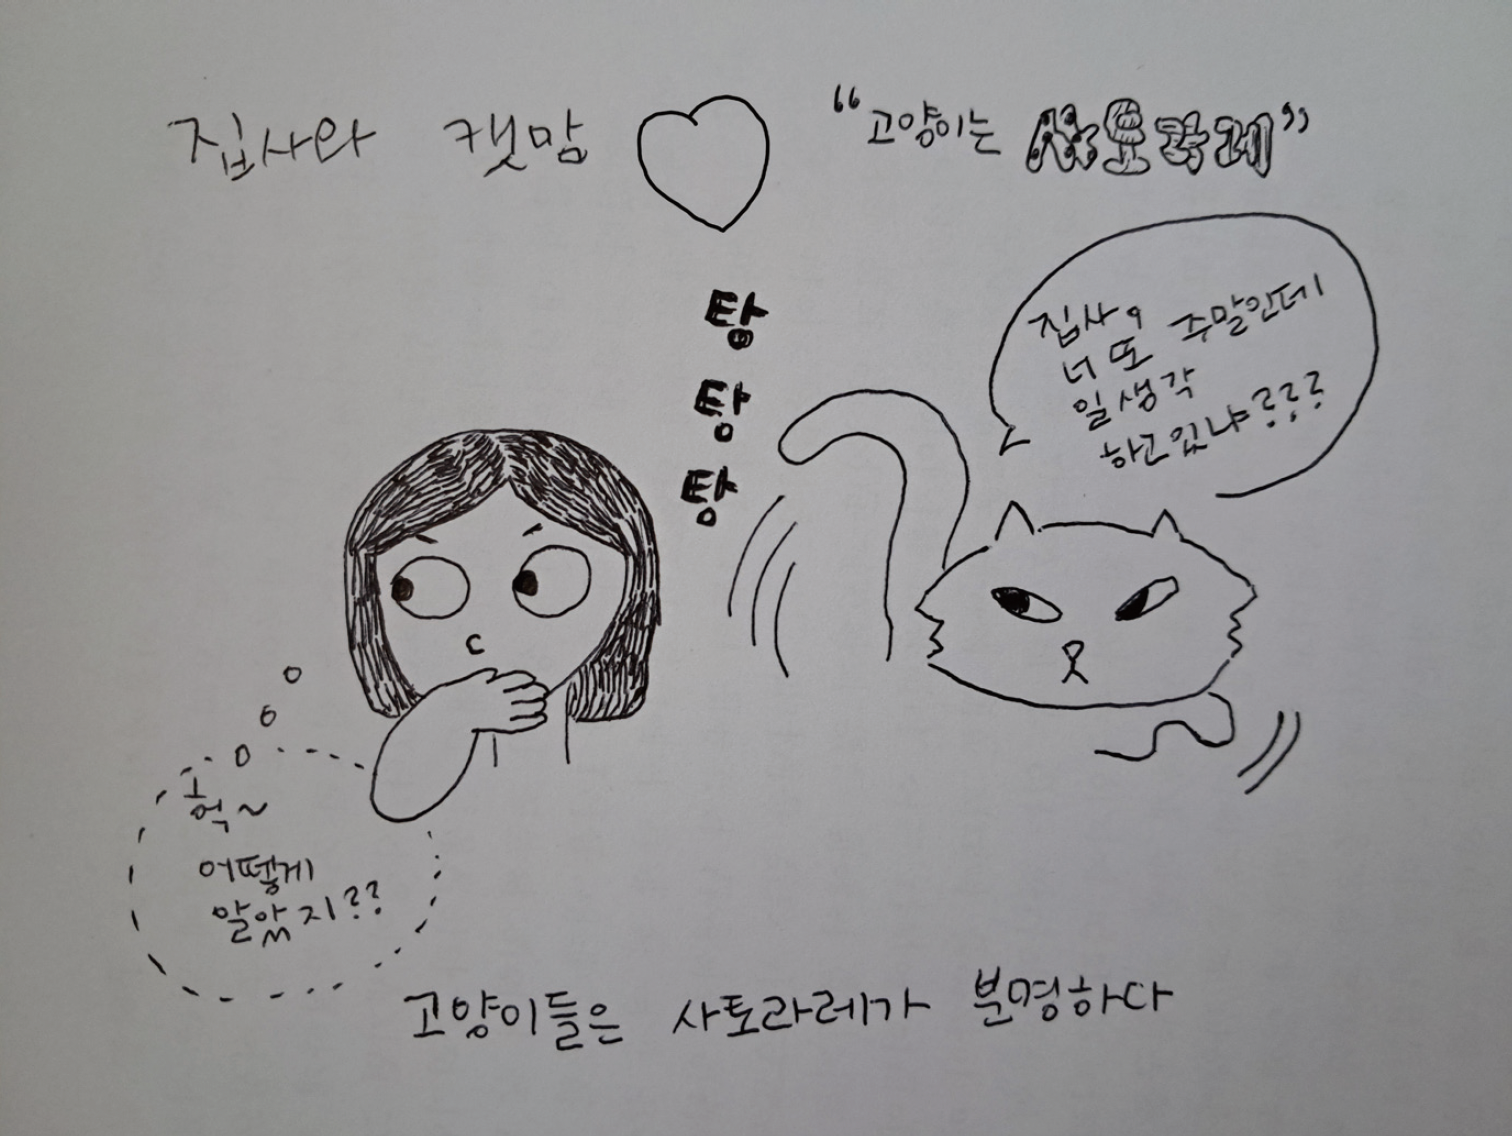 집사와 캣맘
"고양이는 사토라레"
탕
탕
탕
집사야
너 또 주말인데
일생각
하고있냐???
헉~
어떻게
알았지??
고양이들은 사토라레가 분명하다